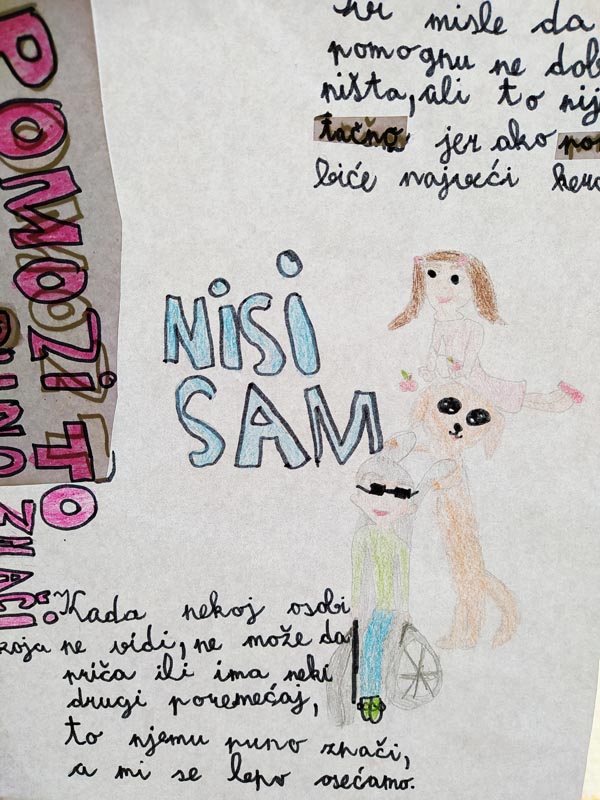 misle da
pomognu ne dob
ništa, ali to nij
tačno jer ako
biće najveći hero
POMOZI TO
PUNO ZNAČI
NiSi
SAM
Kada nekoj osobi
koja ne vidi, ne može da
priča ili ima neki
drugi poremećaj,
to njemu puno znači,
a mi se lepo osećamo.